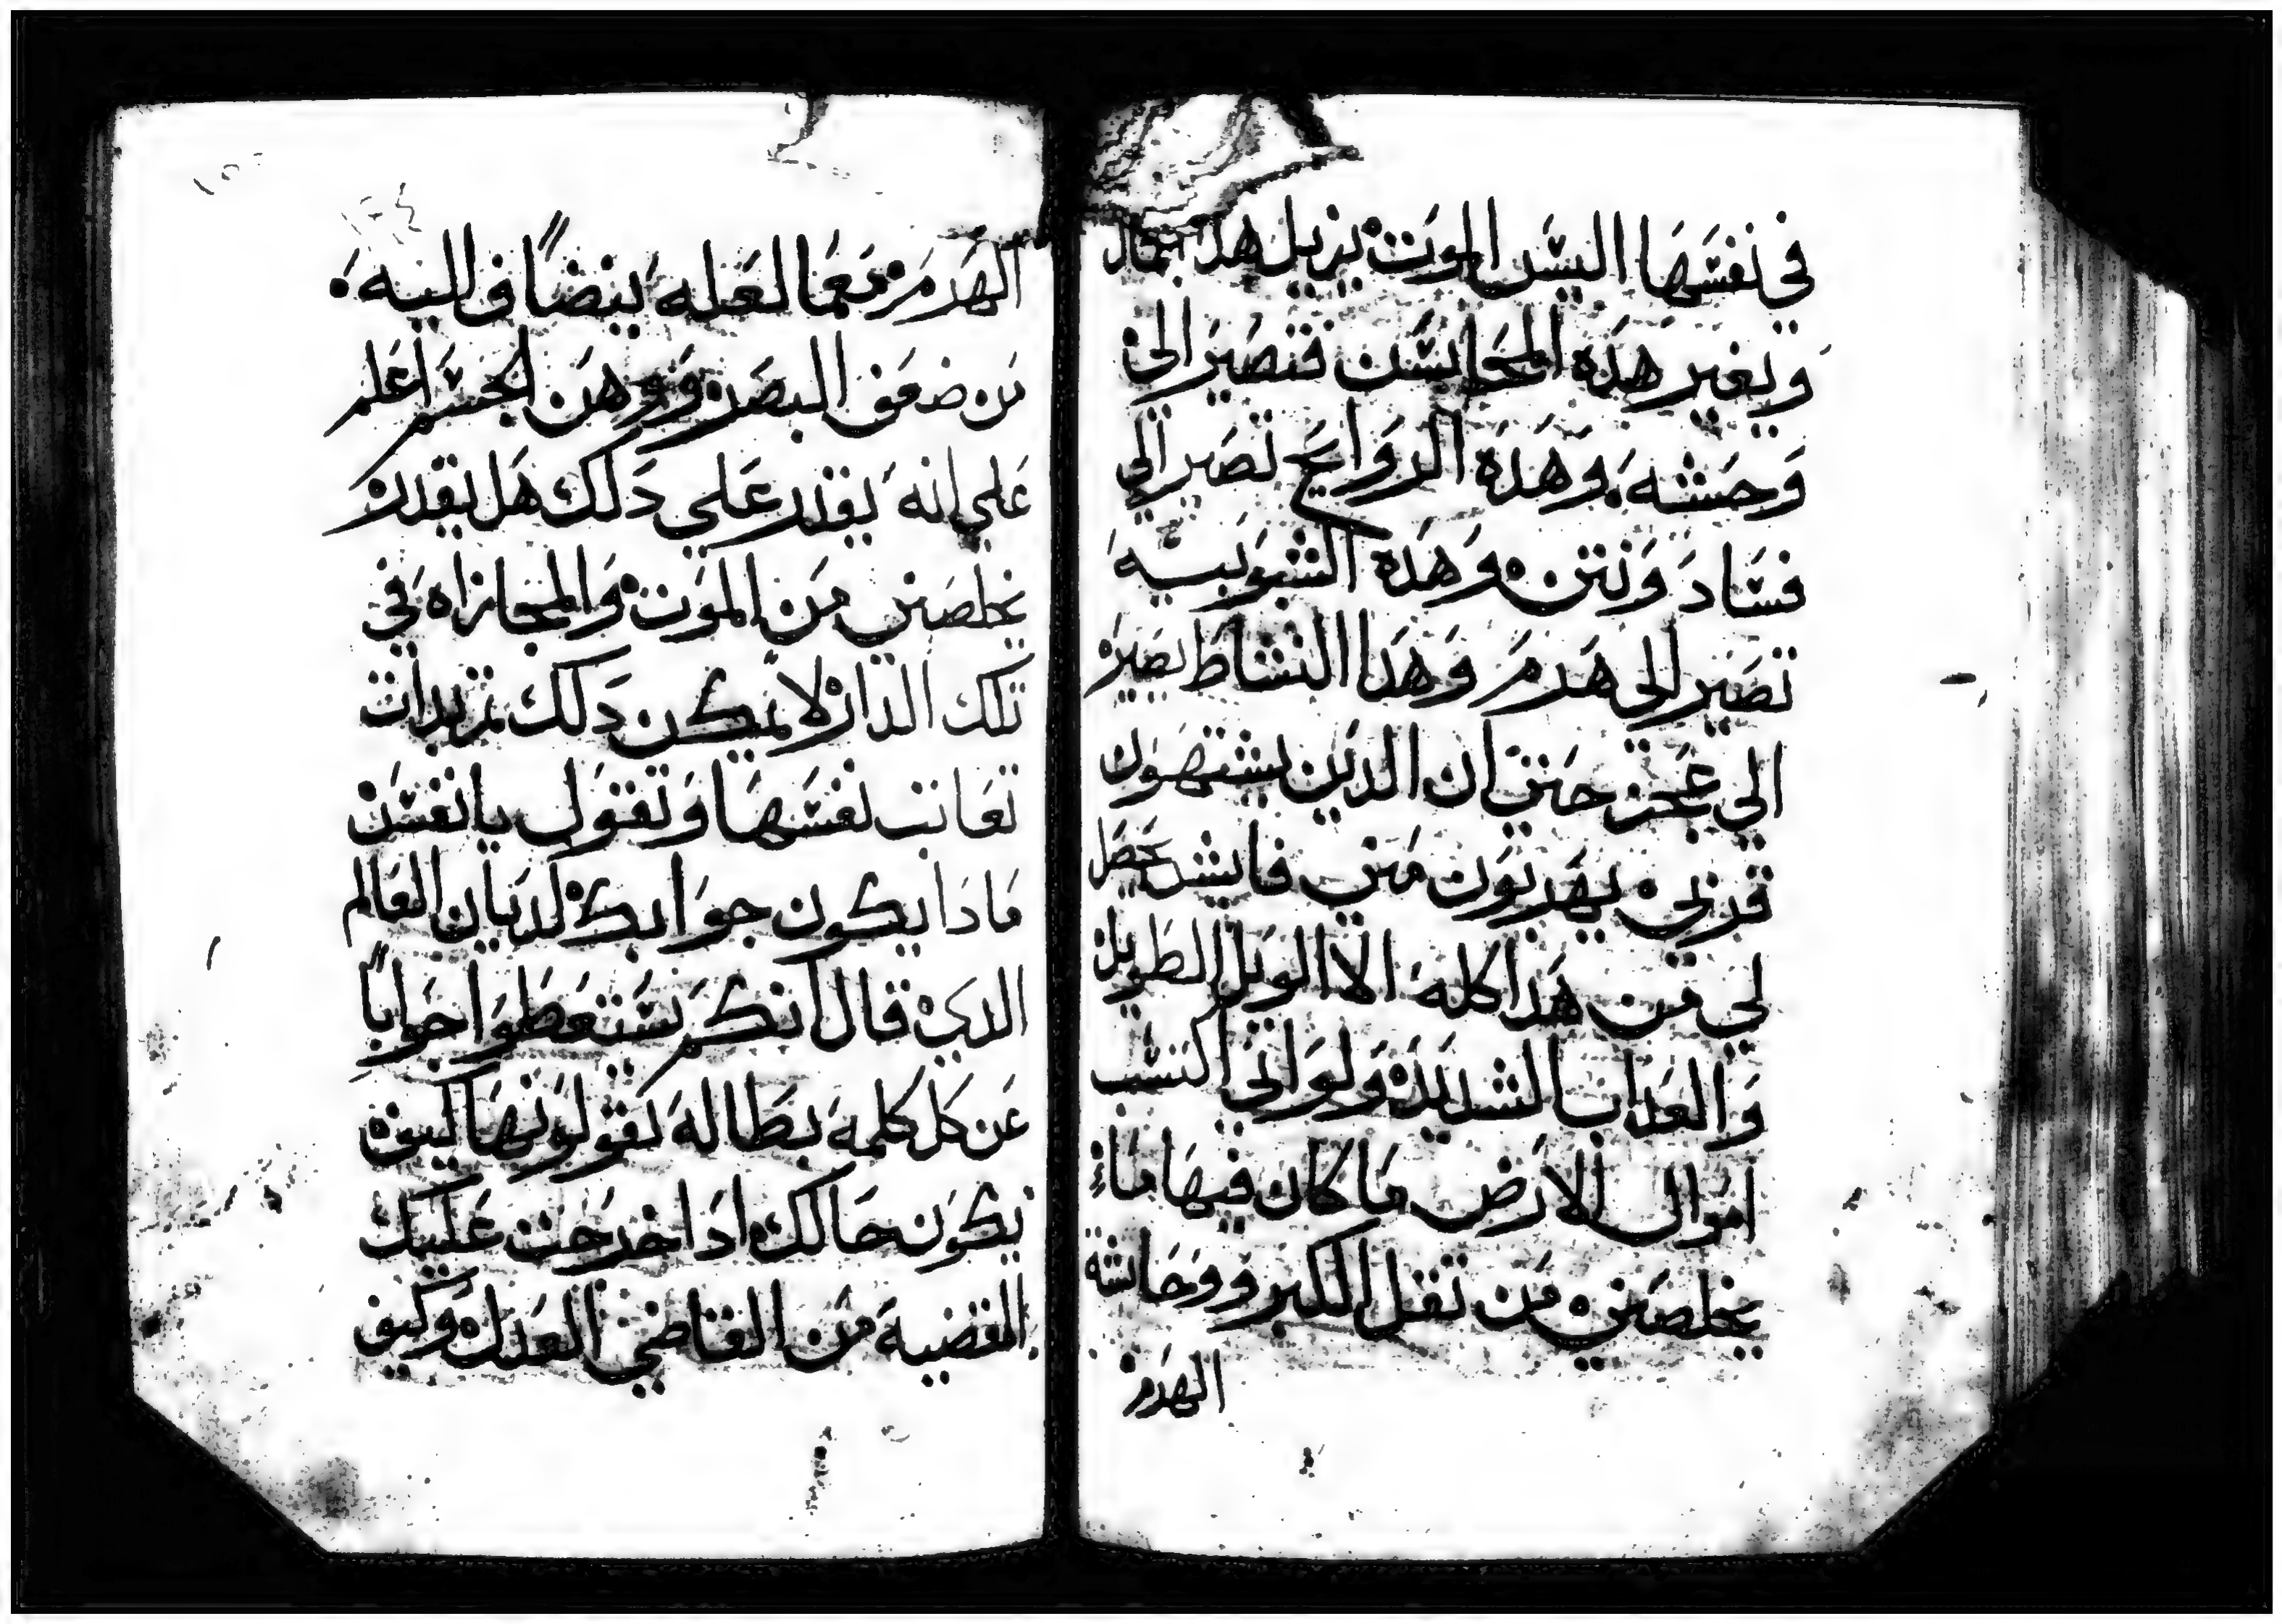 في نفسها اليس الموت يزيل هدا الجمال
ويغير هده المحاسن فتصير الي
وحشه وهده الروايح تصير الي
فساد ونتن وهده الشبوبيه
تصير الي هدم وهدا النشاط يصير
الي عجز حتي ان الدين يشتهون
قربي يهربون مني فايش يحصل
لي من هدا كله الا الويل الطويل
والعداب الشديد ولو اني اكتسب
اموال الارض ما كان فيها ما
يخلصني من تقل الكبر ووحاشة
الهدم
الهدم مع ما لعله ينضاف اليه
من ضعف البصر ووهن الجسم اعلم
علي انه يقدر علي دلك هل يقدر
يخلصني من الموت والمجازاه في
تلك الدار لا يمكن دلك تم بدات
تعاتب نفسها وتقول يا نفس
مادا يكون جوابك لديان العالم
الدي قال انكم ستعطوا جواباً
عن كل كلمة بطاله تقولونها كيف
يكون حالك ادا خرجت عليك
القضية من القاضي العدل وكيف